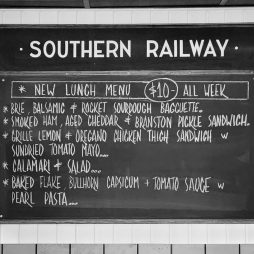 · SOUTHERN RAILWAY ·
* NEW LUNCH MENU $10- ALL WEEK
* BRIE, BALSAMIC & ROCKET SOURDOUGH BAGUETTE...
* SMOKED HAM, AGED CHEDDAR & BRANSTON PICKLE SANDWICH...
* GRILLE LEMON & OREGANO CHICKEN THIGH SANDWICH W
SUNDRIED TOMATO MAYO....
* CALAMARI & SALAD....
* BAKED FLAKE BULLHORN CAPSICUM + TOMATO SAUCE W
PEARL PASTA....